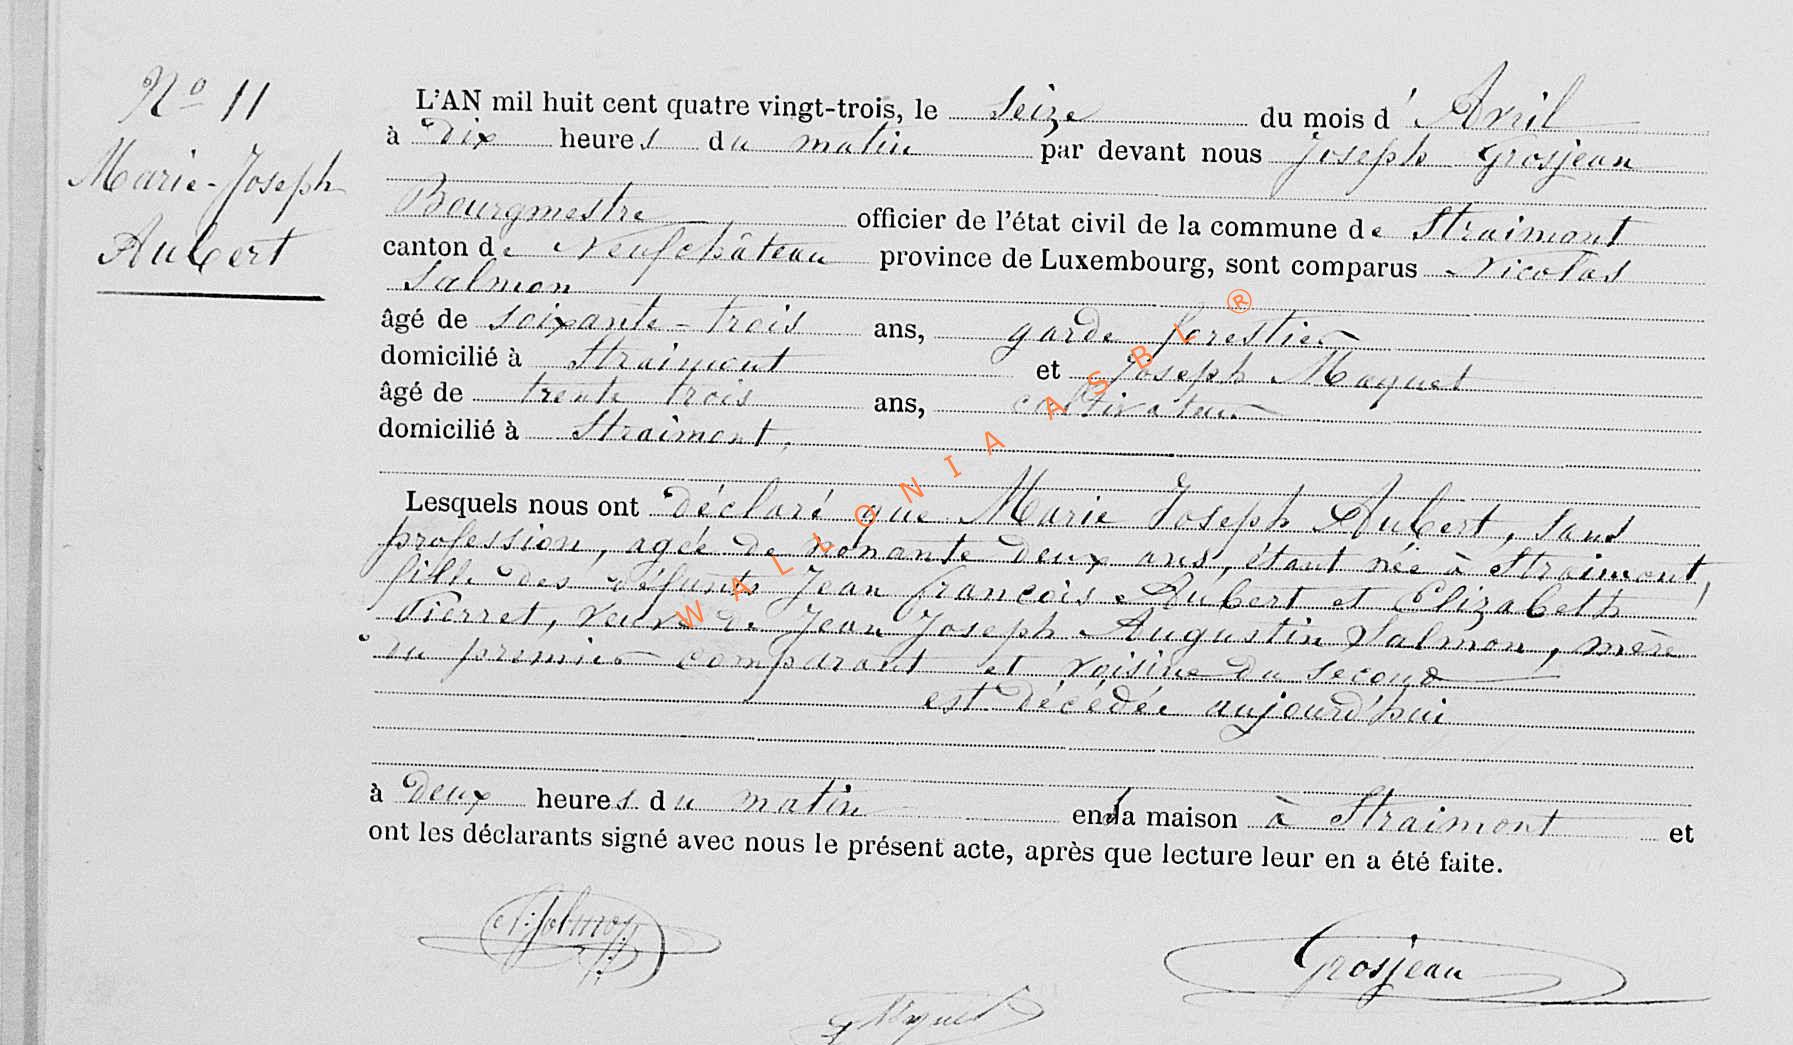 No 11
Marie-Joseph
Aubert
L'AN mil huit cent quatre vingt-trois, le seize du mois d'Avril
à dix heures du matin par devant nous Joseph Grosjean
Bourgmestre officier de l'état civil de la commune de Straimont
canton de Neufchâteau province de Luxembourg, sont comparus Nicolas
Salmon
âgé de soixante-trois ans, garde forestier
domicilié à Straimont et Joseph Maquet
âgé de trente trois ans, cultivateur
domicilié à Straimont,
Lesquels nous ont déclaré que Marie Joseph Aubert, sans
profession, agée de nonante deux ans, étant née à Straimont,
fille des défunts Jean françois Aubert et Elizabeth
Pierret, veuve de Jean Joseph Augustin Salmon, mère
du premier comparant et voisine du second
est décédée aujourd'hui
à deux heures du matin en sa maison à Straimont et
ont les déclarants signé avec nous le présent acte, après que lecture leur en a été faite.
N. Salmon
Grosjean
J Maquet
WALLONIA ASBL ®